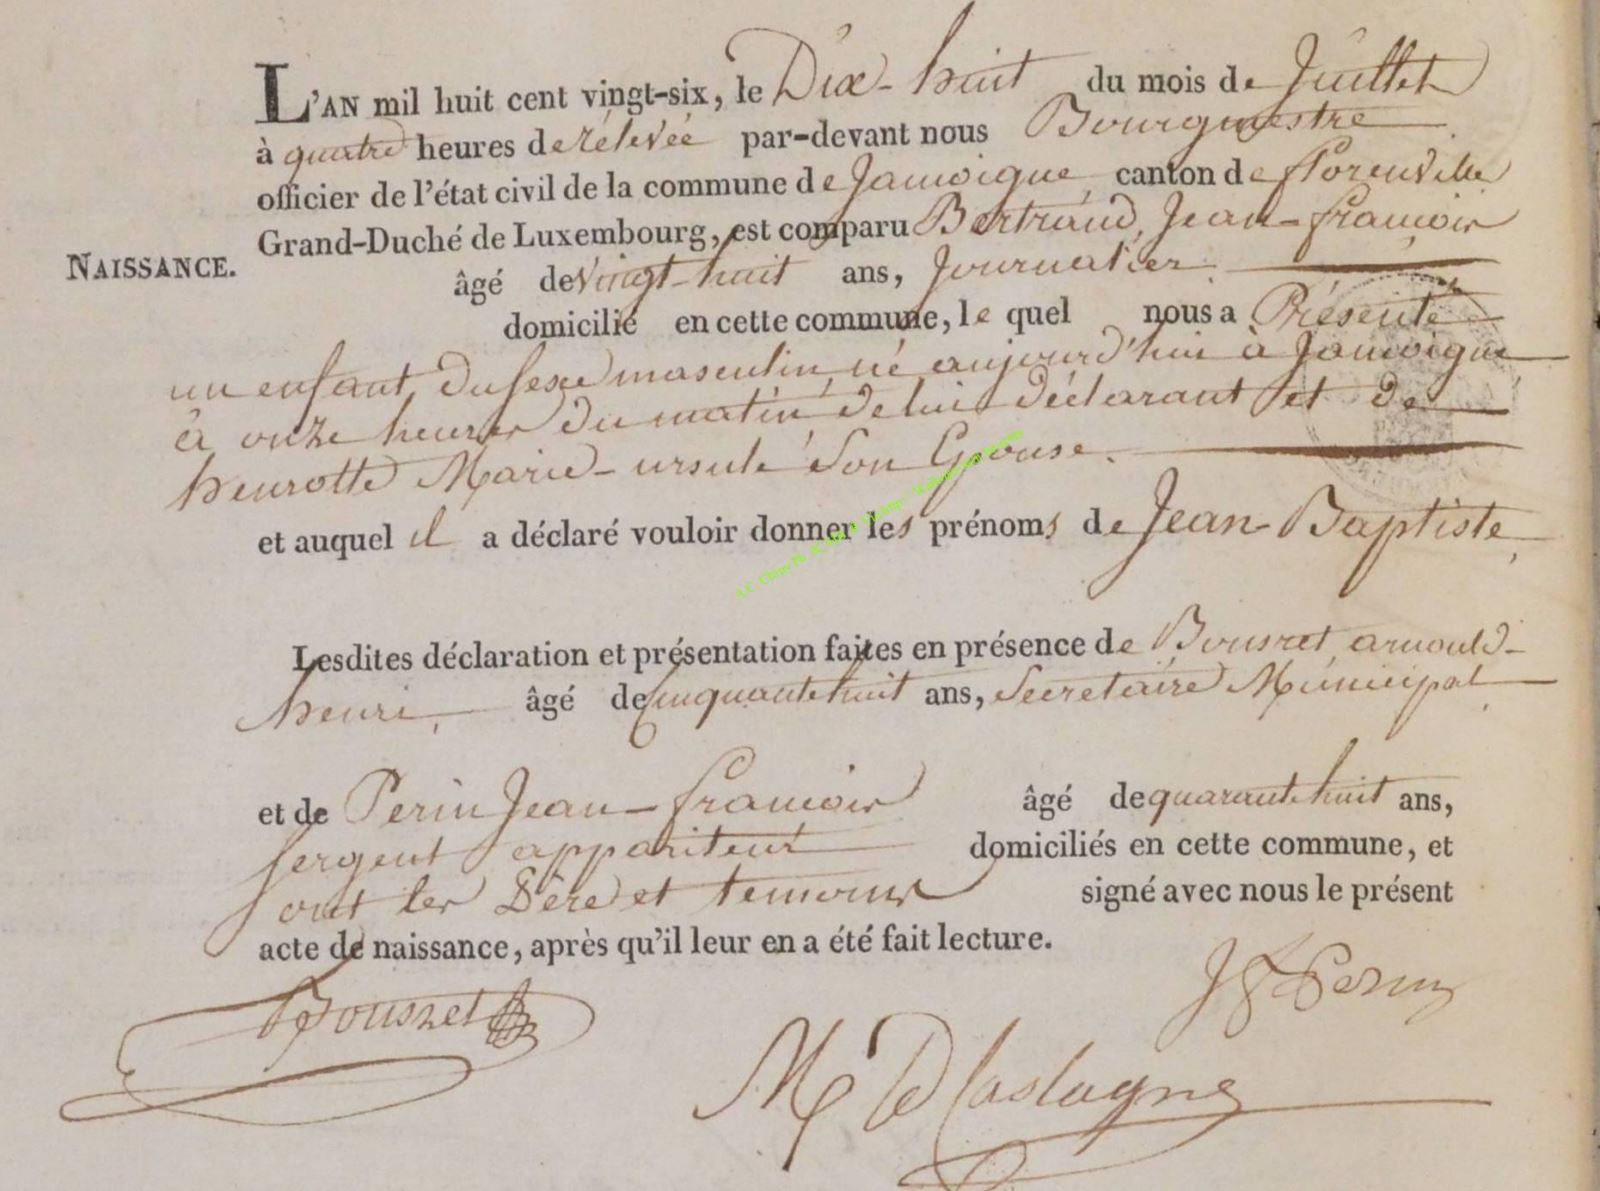 L'AN mil huit cent vingt-six, le Dix-huit du mois de Juillet
à quatre heures de rélevée par-devant nous Bourgmestre
officier de l'état civil de la commune de Jamoigne canton de florenville
Grand-Duché de Luxembourg, est comparu Bertrand, Jean-françois
NAISSANCE.
âgé de vingt-huit ans, Journalier
domicilié en cette commune, le quel nous a Présenté
un enfant du sexe masculin, né aujourd'hui à Jamoigne
à onze heures du matin, de lui déclarant et de
henrotte Marie-ursule Son Epouse.
et auquel il a déclaré vouloir donner les prénoms de Jean-Baptiste,
Lesdites déclaration et présentation faites en présence de Bousret, arnould-
henri, âgé de Cinquante huit ans, Secretaire Municipal,
et de Perin Jean-françois âgé de quarante huit ans,
sergent appariteur domiciliés en cette commune, et
ont les Père et temoins signé avec nous le présent
acte de naissance, après qu'il leur en a été fait lecture.
JF Perin
Bousret